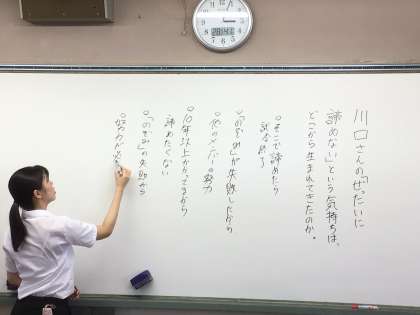 川口さんの「ぜったいに
諦めない」という気持ちは、
どこから生まれてきたのか。
○そこで諦めたら
試合終了
○他のメンバーの努力
○「のぞみ」が失敗したから
○10年以上かかってるから
諦めたくない
○「のぞみ」の失敗から